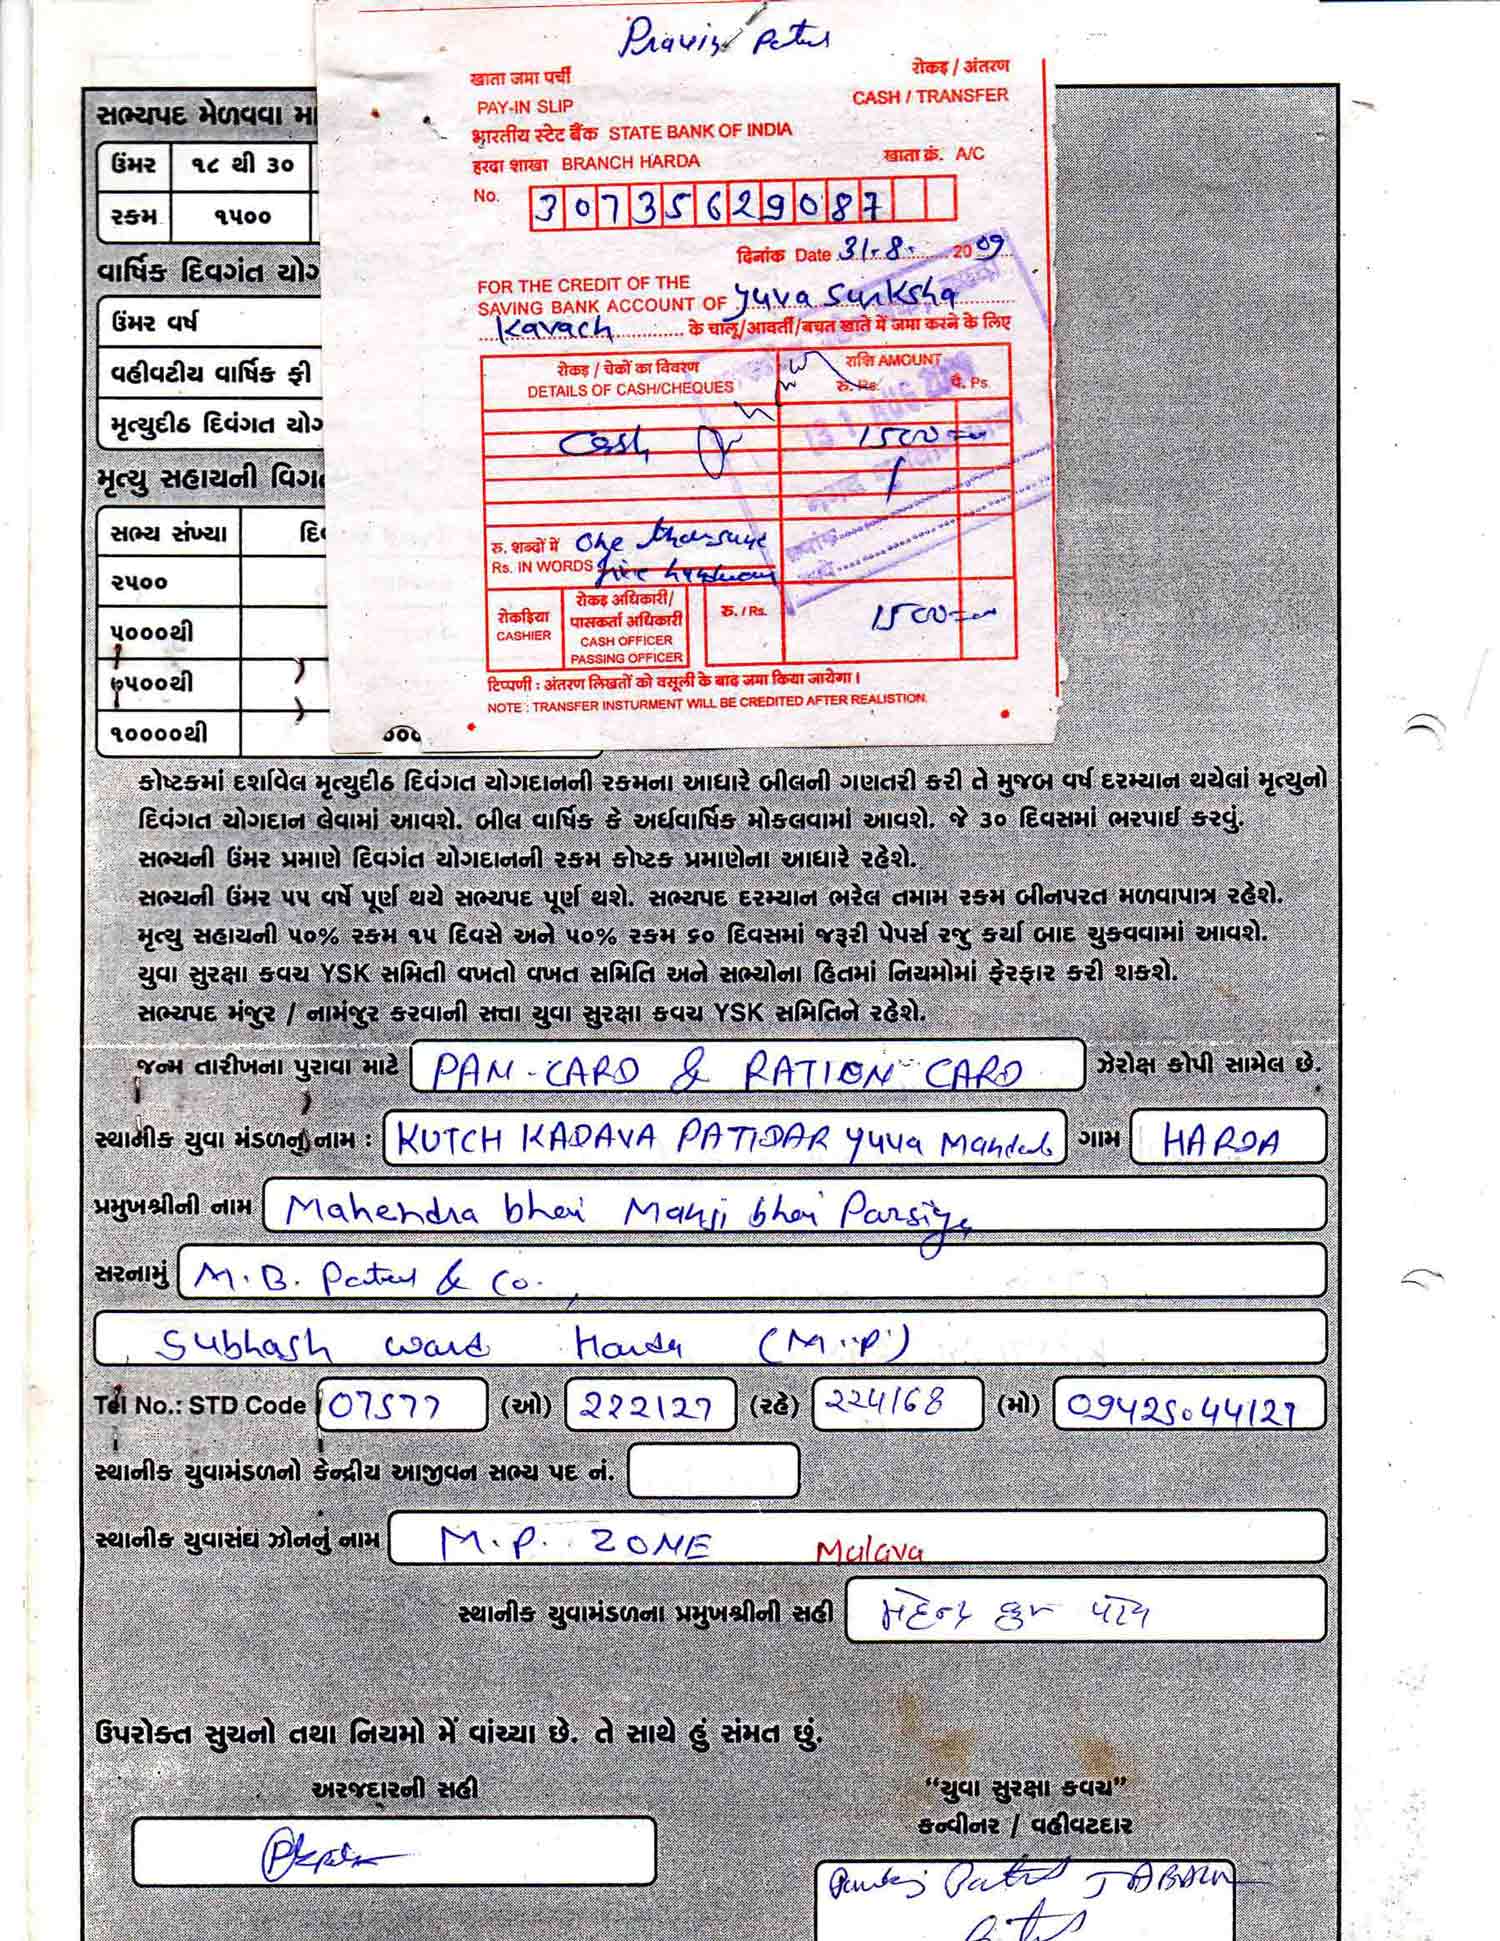 Pravin Patel
खाता जमा पर्ची
रोकड़ / अंतरण
PAY-IN SLIP
CASH / TRANSFER
भारतीय स्टेट बैंक STATE BANK OF INDIA
हरदा शाखा BRANCH HARDA
खाता क्रं. A/C
No. 30735629087
दिनांक Date 31-8- 2009
FOR THE CREDIT OF THE
SAVING BANK ACCOUNT OF Yuva Surksha
Kavach के चालू/आवर्ती/बचत खाते में जमा करने के लिए
रोकड़ / चेकों का विवरण
राशि AMOUNT
DETAILS OF CASH/CHEQUES
रु. Rs.
पै. Ps.
Cash
1500=00
31 AUG 2009
रु. शब्दों में One thousand
Rs. IN WORDS five hundred
रोकड़िया
CASHIER
रोकड़ अधिकारी/
पासकर्ता अधिकारी
CASH OFFICER
PASSING OFFICER
रु. / Rs.
1500=00
टिप्पणी : अंतरण लिखतों को वसूली के बाद जमा किया जायेगा।
NOTE : TRANSFER INSTURMENT WILL BE CREDITED AFTER REALISTION.
સભ્યપદ મેળવવા
ઉંમર ૧૮ થી ૩૦
રકમ ૧૫૦૦
વાર્ષિક દિવગંત
ઉંમર વર્ષ
વહીવટીય વાર્ષિક ફી
મૃત્યુદીઠ દિવંગત
મૃત્યુ સહાયની
સભ્ય સંખ્યા
૨૫૦૦
૫૦૦૦થી
૭૫૦૦થી
૧૦૦૦૦થી
કોષ્ટકમાં દર્શાવેલ મૃત્યુદીઠ દિવંગત યોગદાનની રકમના આધારે બીલની ગણતરી કરી તે મુજબ વર્ષ દરમ્યાન થયેલાં મૃત્યુનો
દિવંગત યોગદાન લેવામાં આવશે. બીલ વાર્ષિક કે અર્ધવાર્ષિક મોકલવામાં આવશે. જે ૩૦ દિવસમાં ભરપાઈ કરવું.
સભ્યની ઉંમર પ્રમાણે દિવગંત યોગદાનની રકમ કોષ્ટક પ્રમાણેના આધારે રહેશે.
સભ્યની ઉંમર ૫૫ વર્ષે પૂર્ણ થયે સભ્યપદ પૂર્ણ થશે. સભ્યપદ દરમ્યાન ભરેલ તમામ રકમ બીનપરત મળવાપાત્ર રહેશે.
મૃત્યુ સહાયની ૫૦% રકમ ૧૫ દિવસે અને ૫૦% રકમ ૬૦ દિવસમાં જરૂરી પેપર્સ રજુ કર્યા બાદ ચુકવવામાં આવશે.
યુવા સુરક્ષા કવચ YSK સમિતી વખતો વખત સમિતિ અને સભ્યોના હિતમાં નિયમોમાં ફેરફાર કરી શકશે.
સભ્યપદ મંજુર / નામંજુર કરવાની સત્તા યુવા સુરક્ષા કવચ YSK સમિતિને રહેશે.
જન્મ તારીખના પુરાવા માટે PAN-CARD & RATION CARD ઝેરોક્ષ કોપી સામેલ છે.
સ્થાનીક યુવા મંડળનું નામ : KUTCH KADAVA PATIDAR Yuva Mandal ગામ HARDA
પ્રમુખશ્રીની નામ Mahendra bhai Manji bhai Parsiya
સરનામું M. B. Patel & Co.,
Subhash ward Harda (M.P.)
Tel No.: STD Code 07577 (ઓ) 222127 (રહે) 224168 (મો) 09425044127
સ્થાનીક યુવામંડળનો કેન્દ્રીય આજીવન સભ્ય પદ નં.
સ્થાનીક યુવાસંઘ ઝોનનું નામ M.P. ZONE Malava
સ્થાનીક યુવામંડળના પ્રમુખશ્રીની સહી
ઉપરોક્ત સુચનો તથા નિયમો મેં વાંચ્યા છે. તે સાથે હું સંમત છું.
અરજદારની સહી
“યુવા સુરક્ષા કવચ”
કન્વીનર / વહીવટદાર
Pankaj Patel